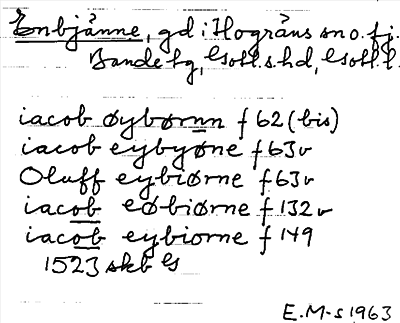 Enbjänne, gd i Hogräns sn o. fj.
Bande hg, Gotl. s. hd, Gotl. l.
iacob øybørnn f 62 (bis)
iacob eybyøne f 63v
Oluff eybiørne f 63v
iacob eøbiørne f 132v
iacob eybiorne f 149
1523 skb G
E.M-s 1963